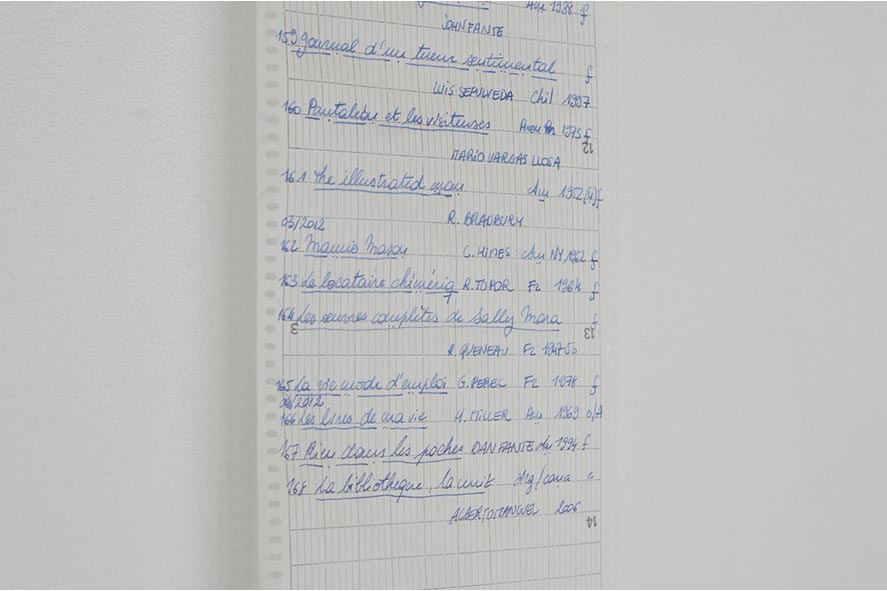 Am 1938 f
JOHN FANTE
159 Journal d'un tueur sentimental f
LUIS SEPULVEDA Chil 1997
160 Pantaleón et les visiteuses 1973 f
12
MARIO VARGAS LLOSA
161 The illustrated man Am 1952 (4) f
R. BRADBURY
03/2012
162 Mamie Mason C. HIMES Am NY 1962 f
163 Le locataire chimériq R. TOPOR Fr 1964 f
164 Les œuvres complètes de Sally Mara f
3 13
R. QUENEAU Fr 1947-55
165 La vie mode d'emploi G. PEREC Fr 1978 f
04/2012
166 Les livres de ma vie H. MILLER Am 1969 e/A
167 Rien dans les poches DAN FANTE Am 1994 f
168 La bibliothèque, la nuit Arg/cana e
ALBERTO MANGUEL 2006
14